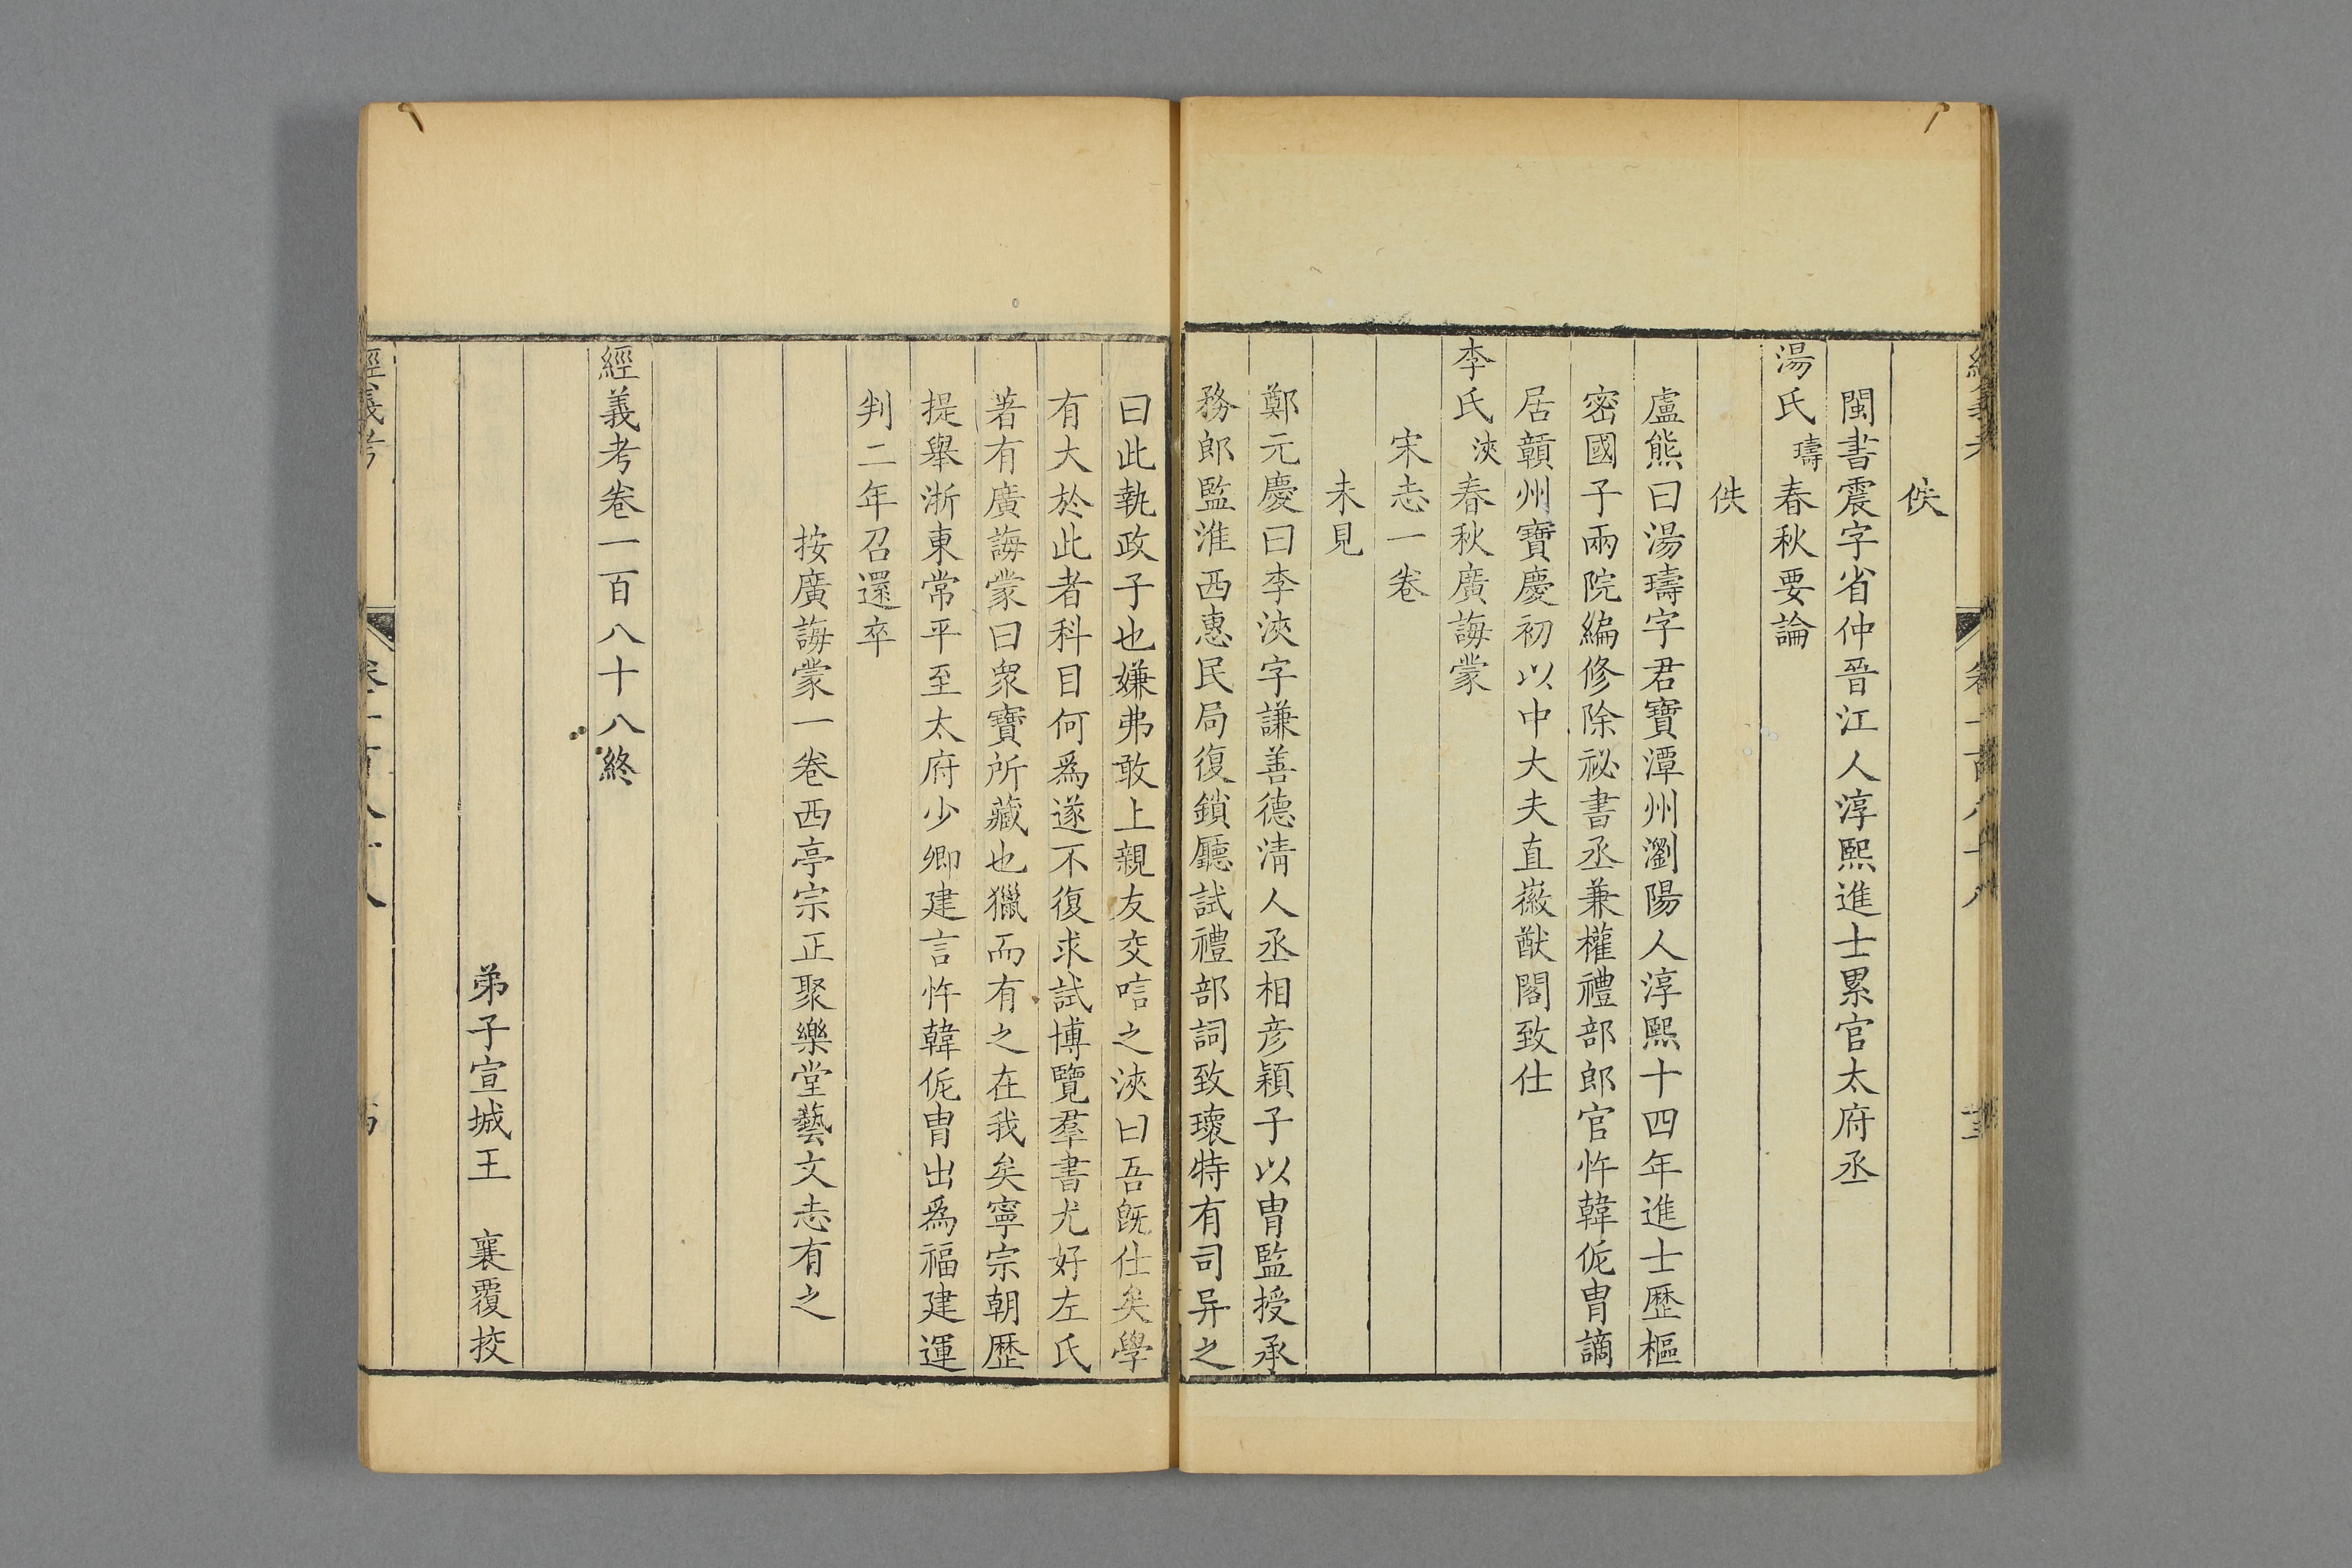 佚
閩書震字省仲晉江人淳熙進士累官太府丞
湯氏璹春秋要論
佚
盧熊曰湯璹字君寶潭州瀏陽人淳熙十四年進士歷樞
密國子兩院編修除祕書丞兼權禮部郎官忤韓侂胄謫
居贑州寶慶初以中大夫直徽猷閣致仕
李氏浹春秋廣誨蒙
宋志一卷
未見
鄭元慶曰李浹字謙善德清人丞相彥穎子以胄監授承
務郎監淮西惠民局復鎖廳試禮部詞致瓌特有司异之
曰此執政子也嫌弗敢上親友交唁之浹曰吾旣仕矣學
有大於此者科目何爲遂不復求試博覽羣書尤好左氏
著有廣誨蒙曰衆寶所藏也獵而有之在我矣寧宗朝歷
提舉浙東常平至太府少卿建言忤韓侂胄出爲福建運
判二年召還卒
按廣誨蒙一卷西亭宗正聚樂堂藝文志有之
經義考卷一百八十八終
弟子宣城王　襄覆挍
經義考